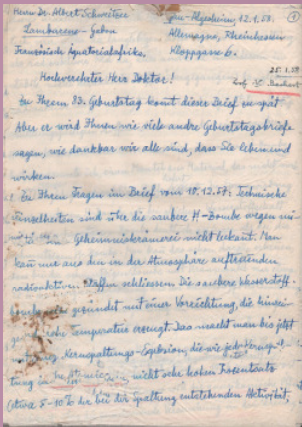 Herrn Dr. Albert Schweitzer
Algesheim 12.1.58. 1
Lambarene - Gabon
Allemagne, Rheinhessen
Französisch Äquatorialafrika.
Kloppgasse 6.
25.1.58
Hochverehrter Herr Doktor!
Bechert
Zu Ihrem 83. Geburtstag kommt dieser Brief zu spät
Aber er wird Ihnen wie viele andre Geburtstagsbriefe
sagen, wie dankbar wir alle sind, dass Sie leben und
wirken.
Zu Ihren Fragen im Brief vom 10.12.57: Technische
Einzelheiten sind über die saubere H-Bombe wegen
Geheimniskrämerei nicht bekannt. Man
kann nur aus den in der Atmosphäre auftretenden
radioaktiven Stoffen schliessen. Die saubere Wasserstoff-
gezündet mit einer Vorrichtung, die hinrei-
hohe Temperatur erzeugt. Das macht man bis jetzt
Kernspaltungs-Explosion, die wie jede
nicht sehr hohen Prozentsatz
(etwa 5-10% der bei der Spaltung entstehenden Aktivität,